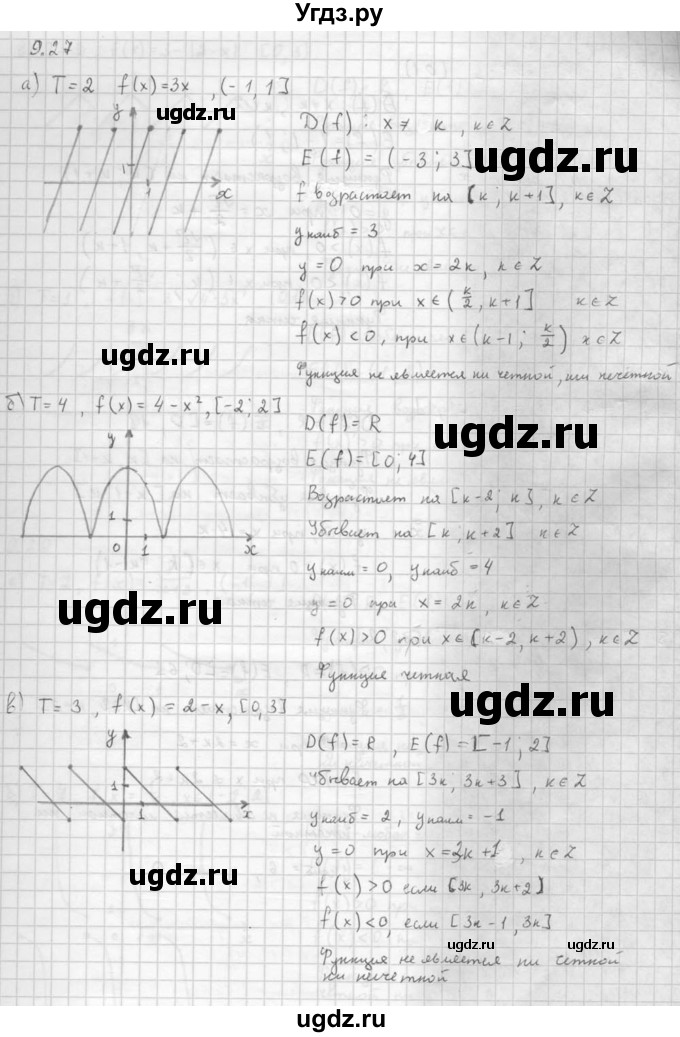 Угдз.ру
9.27
а) T=2 f(x)=3x , (-1, 1]
ugdz.ru
y
1
1
x
D(f): x ≠ к, к∈Z
E(f) = (-3; 3]
ugdz.ru
f возрастает на [к; к+1], к∈Z
yнаиб = 3
y=0 при x=2к, к∈Z
f(x)>0 при x∈(к/2, к+1] к∈Z
f(x)<0, при x∈(к-1; к/2) x∈Z
ugdz.ru
Функция не является ни четной, ни нечетной
б) T=4 , f(x)=4-x², [-2; 2]
y
1
0
1
x
D(f)=R
ugdz.ru
E(f)=[0; 4]
Возрастает на [к-2; к], к∈Z
Убывает на [к; к+2] к∈Z
yнаим=0, yнаиб=4
ugdz.ru
y=0 при x=2к, к∈Z
f(x)>0 при x∈[к-2, к+2), к∈Z
Функция четная
ugdz.ru
в) T=3 , f(x)=2-x, [0,3]
y
1
1
x
D(f)=R , E(f)=[-1; 2]
Убывает на [3к; 3к+3], к∈Z
yнаиб=2, yнаим=-1
y=0 при x=3к+1, к∈Z
ugdz.ru
f(x)>0 если [3к, 3к+2]
f(x)<0, если [3к-1, 3к]
ugdz.ru
ugdz.ru
Функция не является ни четной
ни нечетной
ugdz.ru